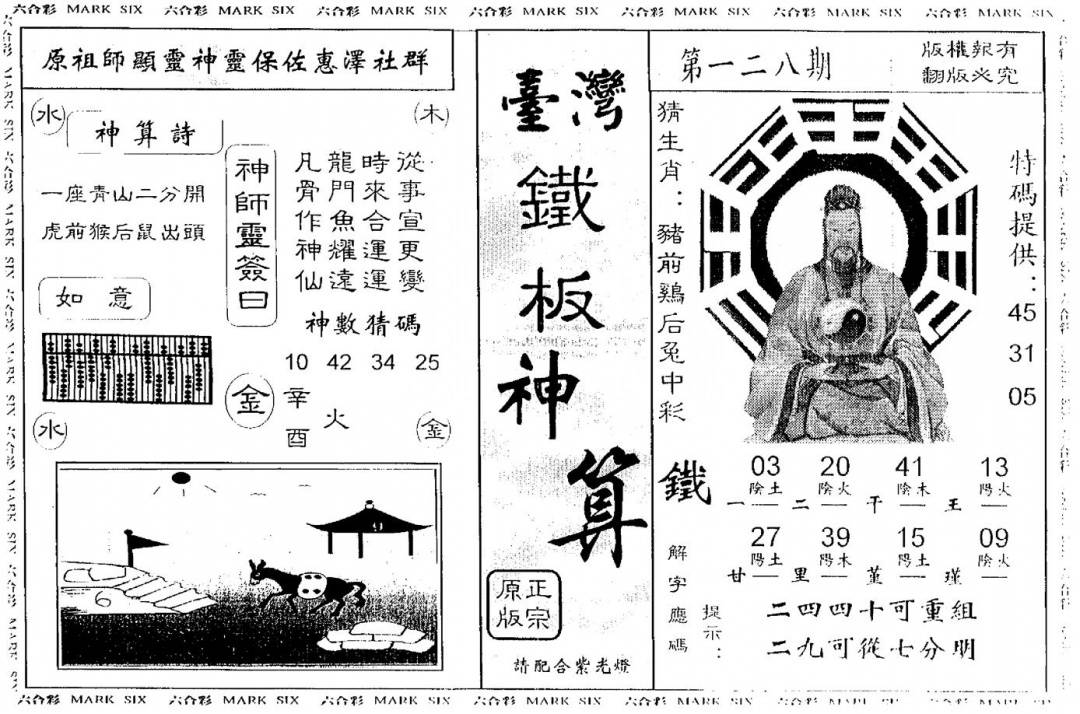 六合彩 MARK SIX 六合彩 MARK SIX 六合彩 MARK SIX 六合彩 MARK SIX 六合彩 MARK SIX 六合彩 MARK SIX 六合彩 MARK SIX
原祖師顯靈神靈保佐惠澤社群
水
木
神算詩
一座青山二分開
虎前猴后鼠出頭
如意
神師靈簽曰
從事宣更變
時來合運運
龍門魚耀遠
凡骨作神仙
神數猜碼
10 42 34 25
金
辛酉
火
水
金
6
臺灣
鐵板神算
正宗
原版
請配合紫光燈
第一二八期
版權報有
翻版必究
猜生肖：豬前鷄后兔中彩
特碼提供：
45
31
05
鐵
解字應碼
03 20 41 13
陰土 陰火 陰木 陽火
一 二 干 王
27 39 15 09
陽土 陽木 陽土 陰火
甘 里 堇 瑾
提示：
二四四十可重組
二九可從七分明
六合彩 MARK SIX 六合彩 MARK SIX 六合彩 MARK SIX 六合彩 MARK SIX 六合彩 MARK SIX